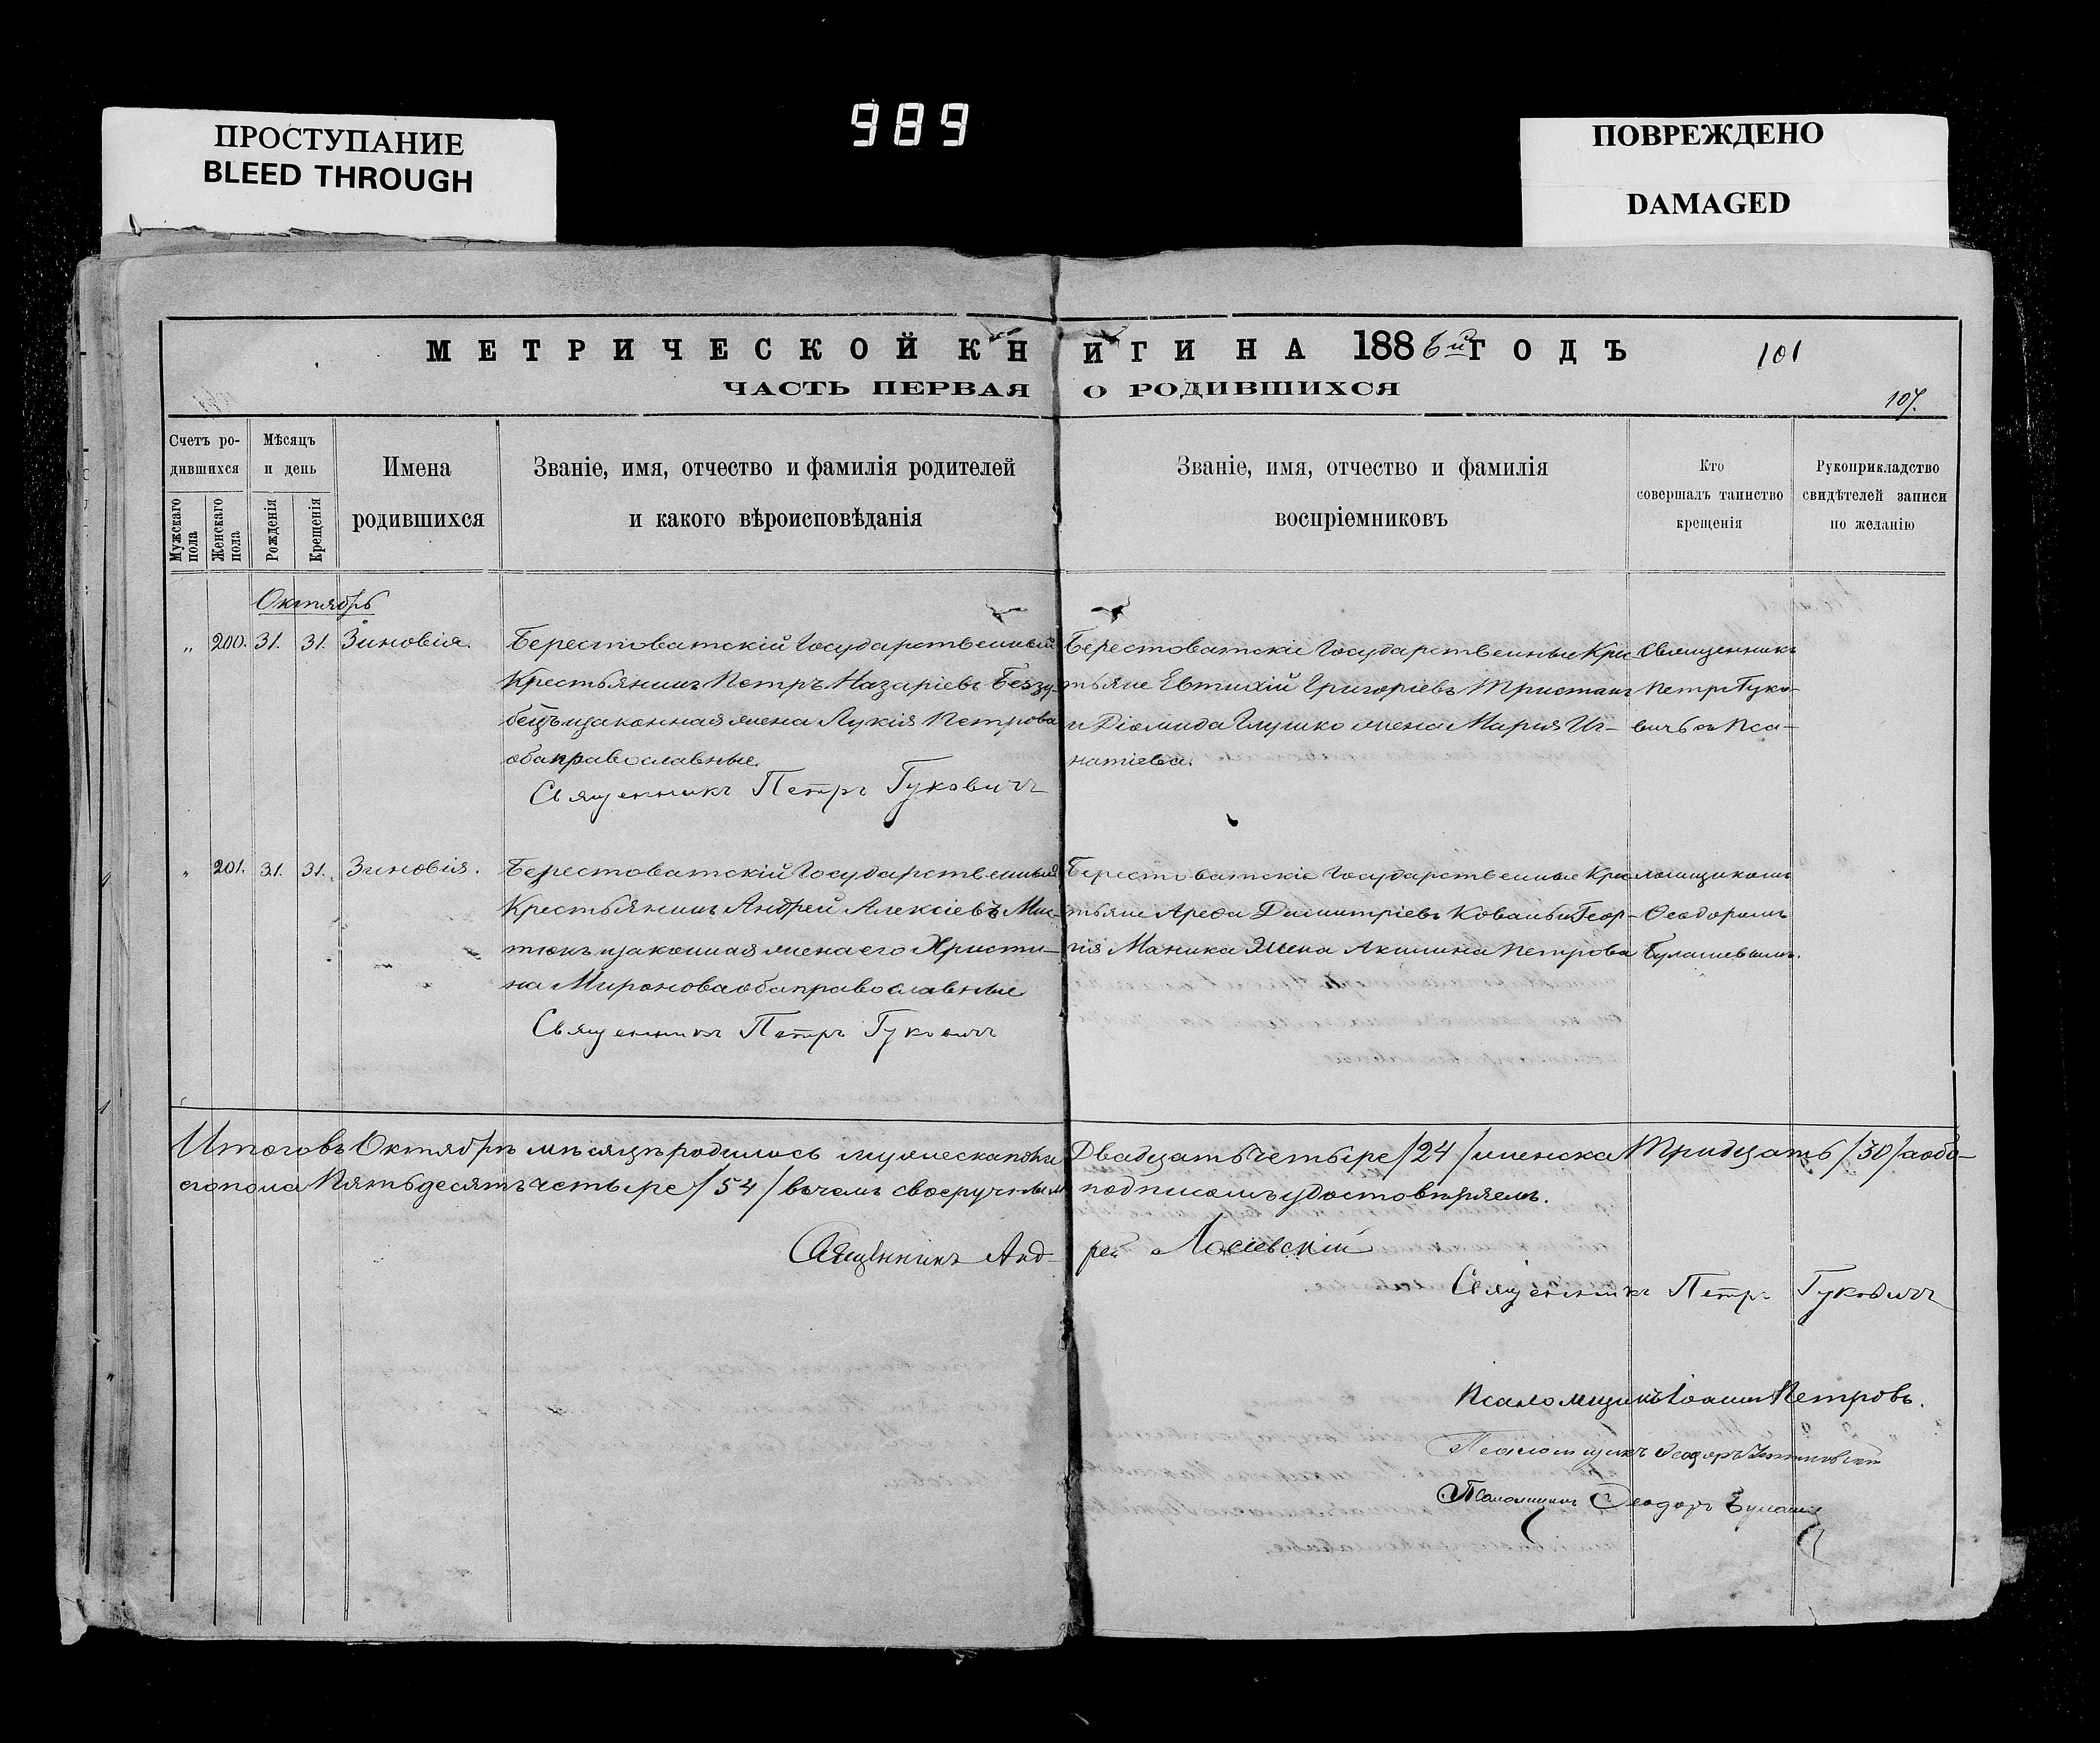 ПРОСТУПАНИЕ
BLEED THROUGH
989
ПОВРЕЖДЕНО
DAMAGED
МЕТРИЧЕСКОЙ КНИГИ НА 1886й ГОДЪ
101
ЧАСТЬ ПЕРВАЯ О РОДИВШИХСЯ
107.
Счетъ ро-
дившихся
Мужскаго
пола
Женскаго
пола
Мѣсяцъ
и день
Рожденія
Крещенія
Имена
родившихся
Званіе, имя, отчество и фамилія родителей
и какого вѣроисповѣданія
Званіе, имя, отчество и фамилія
воспріемниковъ
Кто
совершалъ таинство
крещенія
Рукоприкладство
свидѣтелей записи
по желанію
Октябрь
„ 200. 31. 31. Зиновія.
Берестоватскій Государственный
Крестьянинъ Петръ Назаріевъ Беззу-
бецъ и законная жена Лукія Петрова
оба православные.
Священникъ Петръ Гуковичъ
Берестоватскіе Государственные Крес-
тьяне Евтихій Григоріевъ Тристанъ
и Діомида Глушко жена Марія Иг-
натіева.
Священникъ
Петръ Гуко-
вичъ съ Пса-
„ 201. 31. 31. Зиновія.
Берестоватскій Государственный
Крестьянинъ Андрей Алексіевъ Мис-
тюкъ и законная жена его Христи-
на Миронова оба православные
Священникъ Петръ Гуковичъ
Берестоватскіе Государственные Крес-
тьяне Арефа Димитріевъ Коваль и Геор-
гія Маника жена Акилина Петрова
ломщикомъ
Ѳеодоромъ
Булашевымъ.
Итого въ Октябрѣ мѣсяцѣ родилось мужеска пола Двадцать четыре /24/ женска Тридцать /30/ а обо-
его пола Пятьдесятъ четыре /54/ въ чемъ своеручнымъ подписомъ удостовѣряемъ.
Священникъ Андрей Лосіевскій
Священникъ Петръ Гуковичъ
Псаломщикъ Іоаннъ Петровъ.
Псаломщикъ Ѳеодоръ
Псаломщикъ Ѳеодоръ Булашев